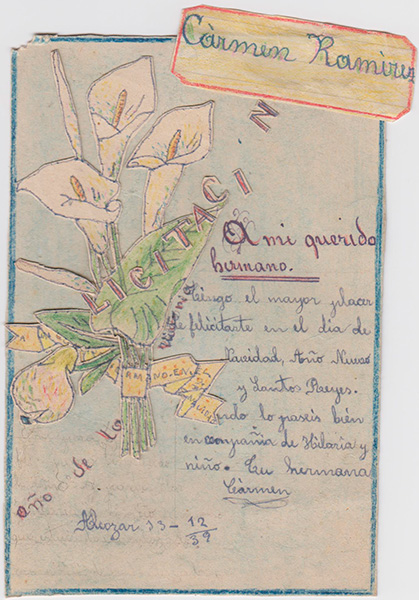 Càrmen Ramirez
LICITACIÓN
A mi querido
hermano.
Tengo el mayor placer
felicitarte en el dia de
Navidad, Año Nuevo
y Santos Reyes.
ndo lo paseis bién
en compañia de Hilaria y
niño. Tu hermana
Càrmen
año de la
Victoria
Alcozar 13-12
39